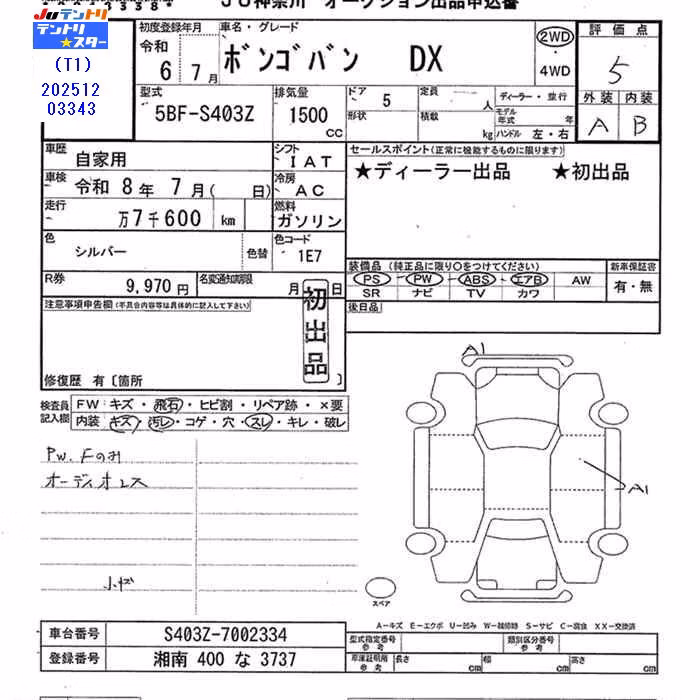 JU神奈川 オークション出品申込書
JUテントリ
テントリ★スター
(T1)
202512
03343
初度登録年月
令和
6年 7月
車名・グレード
ボンゴバン DX
2WD
4WD
評価点
5
外装 内装
A B
型式
5BF-S403Z
排気量
1500
CC
ドア
5
形状
定員
人
積載
kg
ディーラー・並行
モデル年式 年
ハンドル 左・右
車歴
自家用
シフト
IAT
車検
令和 8年 7月( 日)
冷房
AC
走行
万7千600 km
燃料
ガソリン
色
シルバー
色替
色コード
1E7
R券
9,970円
名変通知期限
月 日
セールスポイント(正常に機能するものに限ります)
★ディーラー出品 ★初出品
装備品 (純正品に限り○をつけてください)
PS PW ABS エアB AW
SR ナビ TV カワ
新車保証書
有・無
後日品
注意事項申告欄(不具合内容等は具体的に記入して下さい)
初出品
修復歴 有〔箇所 〕
検査員記入欄
FW:キズ・飛石・ヒビ割・リペア跡・×要
内装:キズ・汚レ・コゲ・穴・スレ・キレ・破レ
PW.Fのみ
オーディオレス
A1
A1
スペア
A-キズ E-エクボ U-凹み W-補修跡 S-サビ C-腐食 XX-交換済
車台番号 S403Z-7002334
登録番号 湘南 400 な 3737
型式指定番号
参考
類別区分番号
参考
車庫証明用
参考
長さ cm 幅 cm 高さ cm